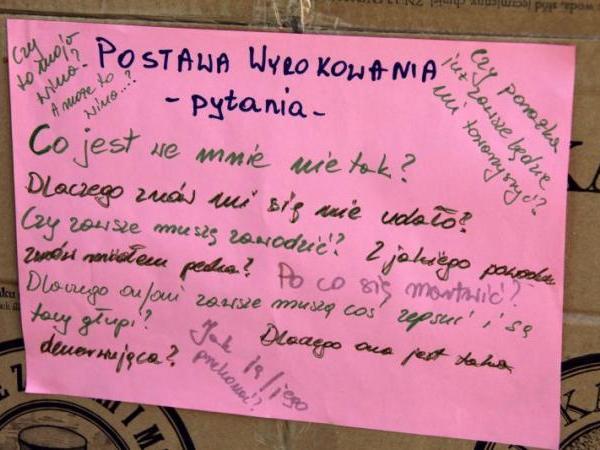 Czy
to moja
wina?
A może to
wina...?
POSTAWA WYROKOWANIA
- pytania -
Czy porażka
już zawsze będzie
mi towarzyszyć?
Co jest we mnie nie tak?
Dlaczego znów mi się nie udało?
Czy zawsze muszę zawodzić? Z jakiego powodu
znów miałem pecha? Po co się martwić?
Dlaczego on/oni zawsze muszą coś zepsuć i są
tacy głupi?
Dlaczego ona jest taka
denerwująca?
Jak ją/jego
przekonać?